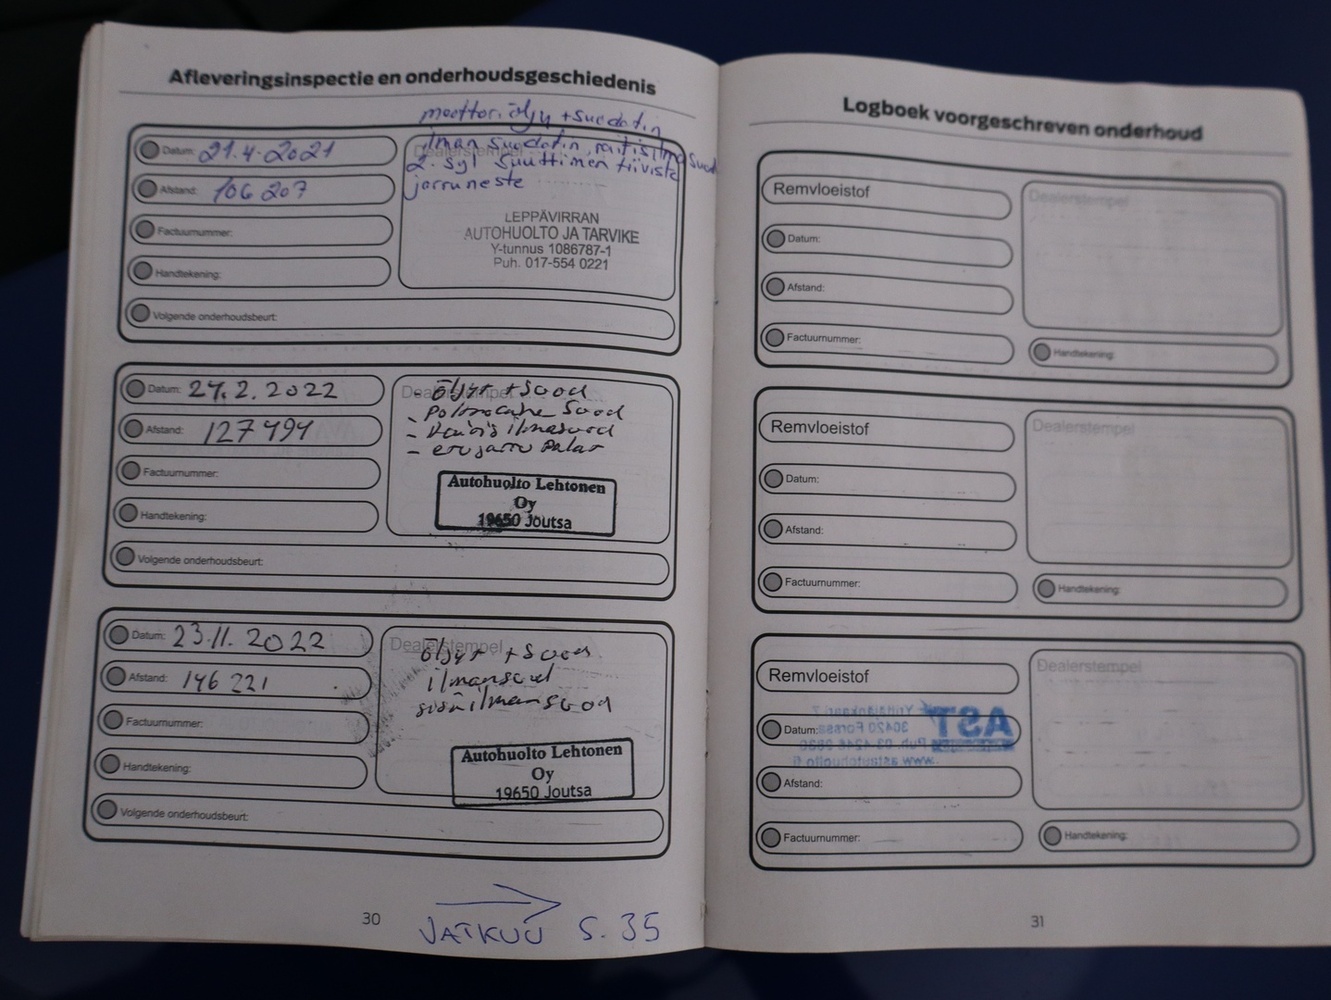 Afleveringsinspectie en onderhoudsgeschiedenis
moottoriöljy + suodatin
Datum: 21.4.2021
ilman suodatin, raitisilmasuod
Dealerstempel
2. syl suuttimen tiiviste
Afstand: 106 207
jarruneste
LEPPÄVIRRAN
AUTOHUOLTO JA TARVIKE
Y-tunnus 1086787-1
Puh. 017-554 0221
Factuurnummer:
Handtekening:
Volgende onderhoudsbeurt:
Datum: 24.2.2022
Dealerstempel
Öljyt + Suod
- Polttoaine Suod
- Raitis ilmasuod
Afstand: 127 494
Autohuolto Lehtonen
Oy
19650 Joutsa
Factuurnummer:
Handtekening:
Volgende onderhoudsbeurt:
Datum: 23.11.2022
Dealerstempel
Öljyt + Suod
ilmansuod
sisäilmansuod
Afstand: 146 221
Autohuolto Lehtonen
Oy
19650 Joutsa
Factuurnummer:
Handtekening:
Volgende onderhoudsbeurt:
30
JATKUU S. 35
Logboek voorgeschreven onderhoud
Remvloeistof
Dealerstempel
Datum:
Afstand:
Factuurnummer:
Handtekening:
Remvloeistof
Dealerstempel
Datum:
Afstand:
Factuurnummer:
Handtekening:
Remvloeistof
Dealerstempel
AST
30420 Forssa
Datum:
www.astautohuolto.fi
Afstand:
Factuurnummer:
Handtekening:
31